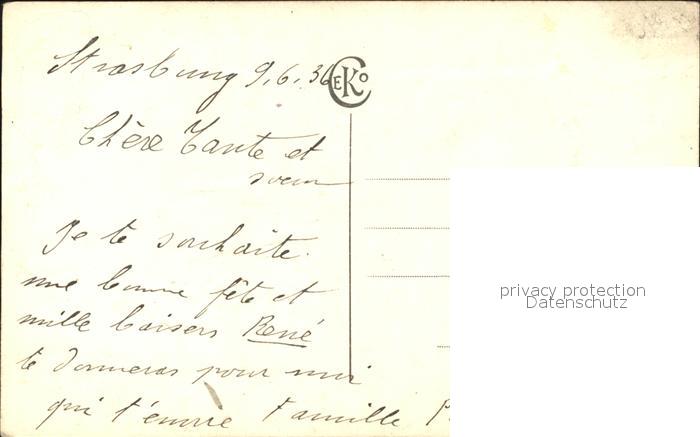 Strasbung 9.6.36
CEKO
Chère Tante et
soeur
Je te souhaite
une bonne fête et
mille baisers René
te donneras pour moi
qui t'envoie Famille
privacy protection
Datenschutz